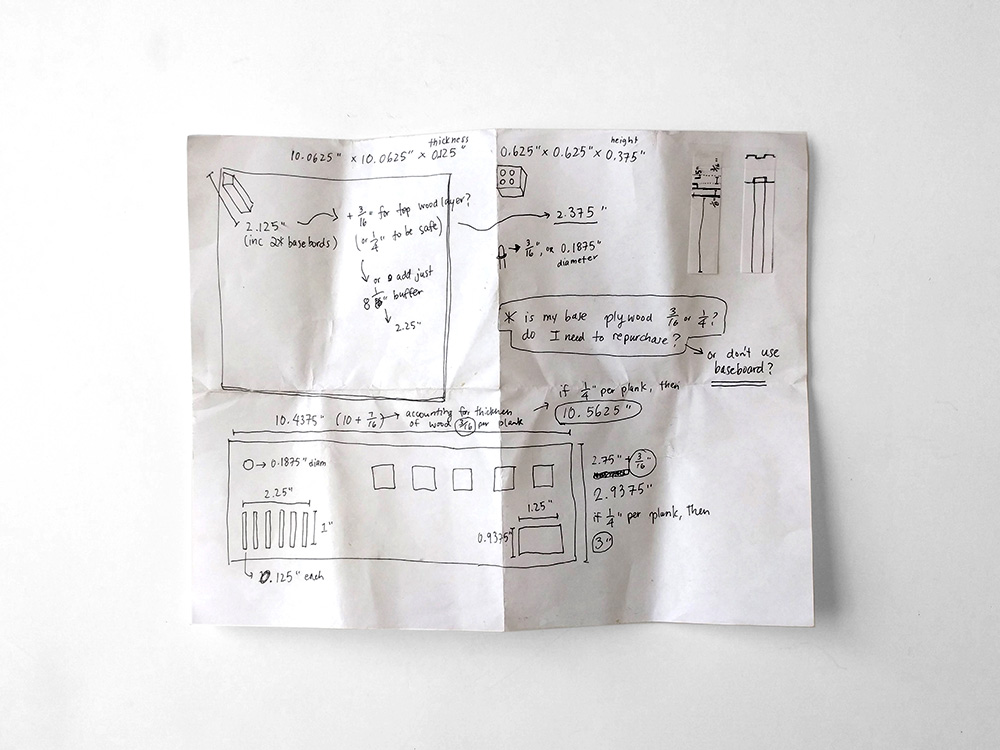 10.0625" x 10.0625" x 0.125"
thickness
2.125"
(inc 2x basebords)
+ 3/16" for top wood layer?
(or 1/4" to be safe)
or add just
1/8" buffer
2.25"
height
0.625" x 0.625" x 0.375"
2.375"
3/16", or 0.1875"
diameter
* is my base plywood 3/16 or 1/4?
do I need to repurchase?
or don't use
baseboard?
10.4375" (10 + 7/16) → accounting for thicknes
of wood 3/16 per plank
if 1/4" per plank, then
10.5625"
0.1875" diam
2.25"
1"
0.125" each
1.25"
0.9375"
2.75" + 3/16"
2.9375"
if 1/4" per plank, then
3"